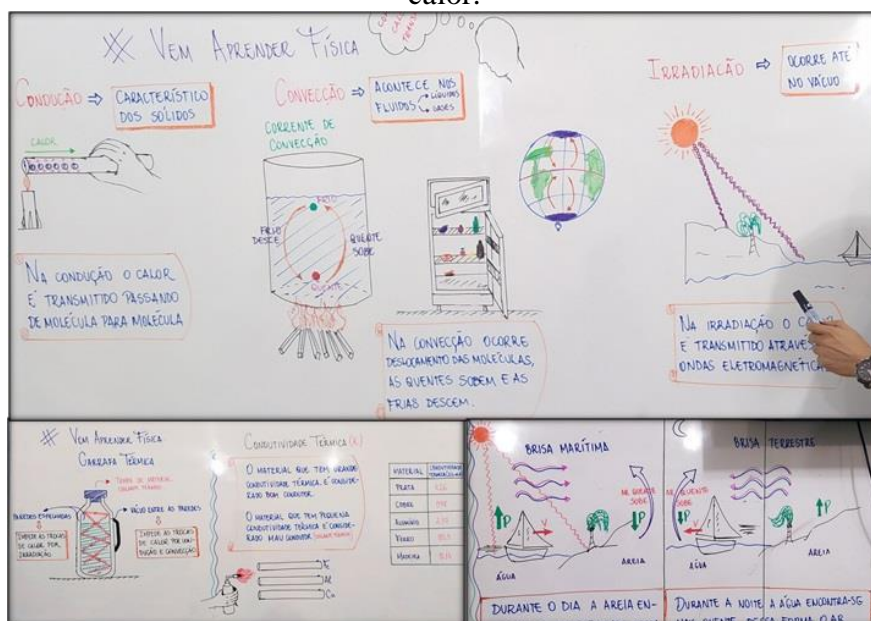 calor.
VEM APRENDER FÍSICA
CONDUÇÃO ⇒
CARACTERÍSTICO
DOS SÓLIDOS
CALOR
NA CONDUÇÃO O CALOR
É TRANSMITIDO PASSANDO
DE MOLÉCULA PARA MOLÉCULA
CONVECÇÃO ⇒
ACONTECE NOS
FLUIDOS
LÍQUIDOS
GASES
CORRENTE DE
CONVECÇÃO
FRIO
FRIO
DESCE
QUENTE
SOBE
QUENTE
NA CONVECÇÃO OCORRE
DESLOCAMENTO DAS MOLÉCULAS,
AS QUENTES SOBEM E AS
FRIAS DESCEM.
IRRADIAÇÃO ⇒
OCORRE ATÉ
NO VÁCUO
NA IRRADIAÇÃO O
É TRANSMITIDO
ONDAS
VEM APRENDER FÍSICA
GARRAFA TÉRMICA
TAMPA DE MATERIAL
PAREDES ESPELHADAS
IMPEDE AS TROCAS
DE CALOR POR
IRRADIAÇÃO
VÁCUO ENTRE AS PAREDES
IMPEDE AS TROCAS
DE CALOR POR CON-
DUÇÃO E CONVECÇÃO
CONDUTIVIDADE TÉRMICA (K)
O MATERIAL QUE TEM GRANDE
CONDUTIVIDADE TÉRMICA É CONSIDE-
RADO BOM CONDUTOR.
O MATERIAL QUE TEM PEQUENA
CONDUTIVIDADE TÉRMICA É CONSIDE-
RADO MAU CONDUTOR
Al
Cu
MATERIAL
PRATA
COBRE
ALUMÍNIO
VIDRO
MADEIRA
BRISA MARÍTIMA
P
V
P
ÁGUA
AREIA
DURANTE O DIA A AREIA EN-
BRISA TERRESTRE
QUENTE
SOBE
P
V
P
ÁGUA
AREIA
DURANTE A NOITE A ÁGUA ENCONTRA-SE